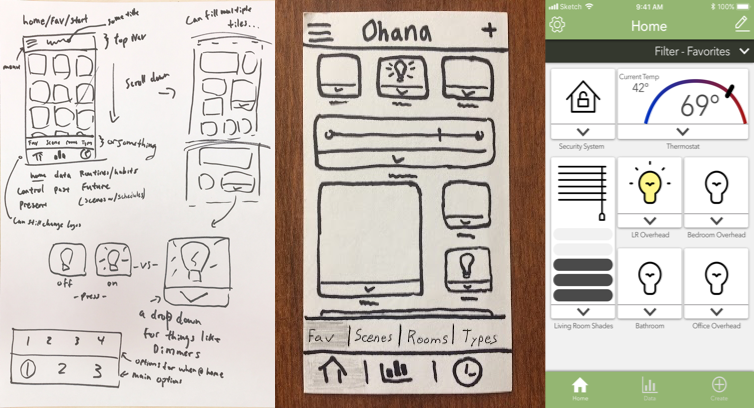 home/Fav/start
some title
} top nav
menu
Scroll down
Can fill multiple
tiles...
Fav Scene Room Type
} or something
home data Routines/habits
Control past Future
Present (scenes~/schedules)
Can still change logos
off
on
- press -
- VS -
a drop down
for things like
Dimmers
1 2 3 4
1 2 3
options for when @ home
main options
Ohana
+
Fav | Scenes | Rooms | Types
Sketch
9:41 AM
100%
Home
Filter - Favorites
Current Temp
42°
69°
Security System
Thermostat
LR Overhead
Bedroom Overhead
Living Room Shades
Bathroom
Office Overhead
Home
Data
Create